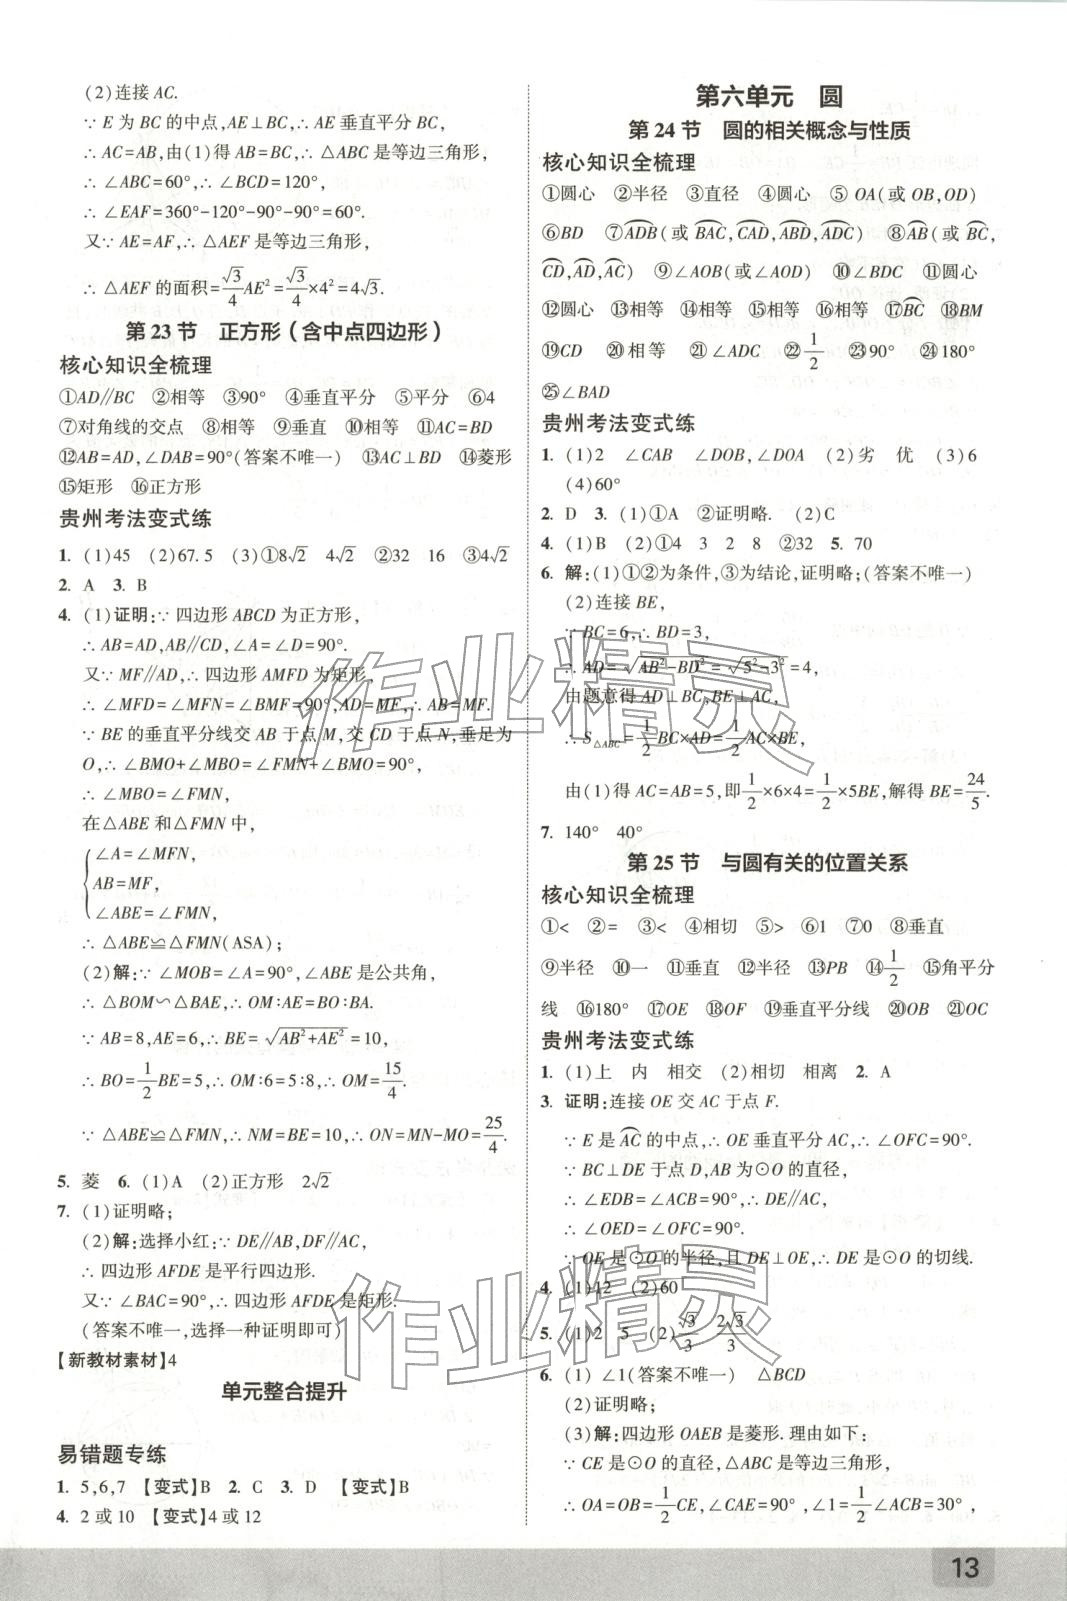 (2)连接 AC.
∵ E 为 BC 的中点,AE⊥BC,∴ AE 垂直平分 BC,
∴ AC=AB,由(1)得 AB=BC,∴ △ABC 是等边三角形,
∴ ∠ABC=60°,∴ ∠BCD=120°,
∴ ∠EAF=360°-120°-90°-90°=60°.
又∵ AE=AF,∴ △AEF 是等边三角形,
∴ △AEF 的面积=√3/4 AE²=√3/4×4²=4√3.
第 23 节 正方形(含中点四边形)
核心知识全梳理
①AD∥BC ②相等 ③90° ④垂直平分 ⑤平分 ⑥4
⑦对角线的交点 ⑧相等 ⑨垂直 ⑩相等 ⑪AC=BD
⑫AB=AD,∠DAB=90°(答案不唯一) ⑬AC⊥BD ⑭菱形
⑮矩形 ⑯正方形
贵州考法变式练
1. (1)45 (2)67.5 (3)①8√2 4√2 ②32 16 ③4√2
2. A 3. B
4. (1)证明:∵ 四边形 ABCD 为正方形,
∴ AB=AD,AB∥CD,∠A=∠D=90°.
又∵ MF∥AD,∴ 四边形 AMFD 为矩形,
∴ ∠MFD=∠MFN=∠BMF=90°,AD=MF,∴ AB=MF.
∵ BE 的垂直平分线交 AB 于点 M,交 CD 于点 N,垂足为
O,∴ ∠BMO+∠MBO=∠FMN+∠BMO=90°,
∴ ∠MBO=∠FMN,
在△ABE 和△FMN 中,
∠A=∠MFN,
AB=MF,
∠ABE=∠FMN,
∴ △ABE≌△FMN(ASA);
(2)解:∵ ∠MOB=∠A=90°,∠ABE 是公共角,
∴ △BOM∽△BAE,∴ OM∶AE=BO∶BA.
∵ AB=8,AE=6,∴ BE=√(AB²+AE²)=10,
∴ BO=1/2 BE=5,∴ OM∶6=5∶8,∴ OM=15/4.
∵ △ABE≌△FMN,∴ NM=BE=10,∴ ON=MN-MO=25/4.
5. 菱 6. (1)A (2)正方形 2√2
7. (1)证明略;
(2)解:选择小红:∵ DE∥AB,DF∥AC,
∴ 四边形 AFDE 是平行四边形.
又∵ ∠BAC=90°,∴ 四边形 AFDE 是矩形.
(答案不唯一,选择一种证明即可)
【新教材素材】4
单元整合提升
易错题专练
1. 5,6,7 【变式】B 2. C 3. D 【变式】B
4. 2 或 10 【变式】4 或 12
第六单元 圆
第 24 节 圆的相关概念与性质
核心知识全梳理
①圆心 ②半径 ③直径 ④圆心 ⑤ OA(或 OB,OD)
⑥BD ⑦ADB(或 BAC,CAD,ABD,ADC) ⑧AB(或 BC,
CD,AD,AC) ⑨∠AOB(或∠AOD) ⑩∠BDC ⑪圆心
⑫圆心 ⑬相等 ⑭相等 ⑮相等 ⑯相等 ⑰BC ⑱BM
⑲CD ⑳相等 ㉑∠ADC ㉒1/2 ㉓90° ㉔180°
㉕∠BAD
贵州考法变式练
1. (1)2 ∠CAB ∠DOB,∠DOA (2)劣 优 (3)6
(4)60°
2. D 3. (1)①A ②证明略. (2)C
4. (1)B (2)①4 3 2 8 ②32 5. 70
6. 解:(1)①②为条件,③为结论,证明略;(答案不唯一)
(2)连接 BE,
∵ BC=6,∴ BD=3,
∴ AD=√(AB²-BD²)=√(5²-3²)=4,
由题意得 AD⊥BC,BE⊥AC,
∴ S△ABC=1/2 BC×AD=1/2 AC×BE,
由(1)得 AC=AB=5,即1/2×6×4=1/2×5BE,解得 BE=24/5.
7. 140° 40°
第 25 节 与圆有关的位置关系
核心知识全梳理
①< ②= ③< ④相切 ⑤> ⑥1 ⑦0 ⑧垂直
⑨半径 ⑩一 ⑪垂直 ⑫半径 ⑬PB ⑭1/2 ⑮角平分
线 ⑯180° ⑰OE ⑱OF ⑲垂直平分线 ⑳OB ㉑OC
贵州考法变式练
1. (1)上 内 相交 (2)相切 相离 2. A
3. 证明:连接 OE 交 AC 于点 F.
∵ E 是 AC 的中点,∴ OE 垂直平分 AC,∴ ∠OFC=90°.
∵ BC⊥DE 于点 D,AB 为⊙O 的直径,
∴ ∠EDB=∠ACB=90°,∴ DE∥AC,
∴ ∠OED=∠OFC=90°.
∵ OE 是⊙O 的半径,且 DE⊥OE,∴ DE 是⊙O 的切线.
4. (1)12 (2)60
5. (1)2 5 (2)√3/3 2√3/3
6. (1) ∠1(答案不唯一) ∠BCD
(2)证明略;
(3)解:四边形 OAEB 是菱形. 理由如下:
∵ CE 是⊙O 的直径,△ABC 是等边三角形,
∴ OA=OB=1/2 CE,∠CAE=90°,∠1=1/2∠ACB=30°,
13
作业精灵
作业精灵